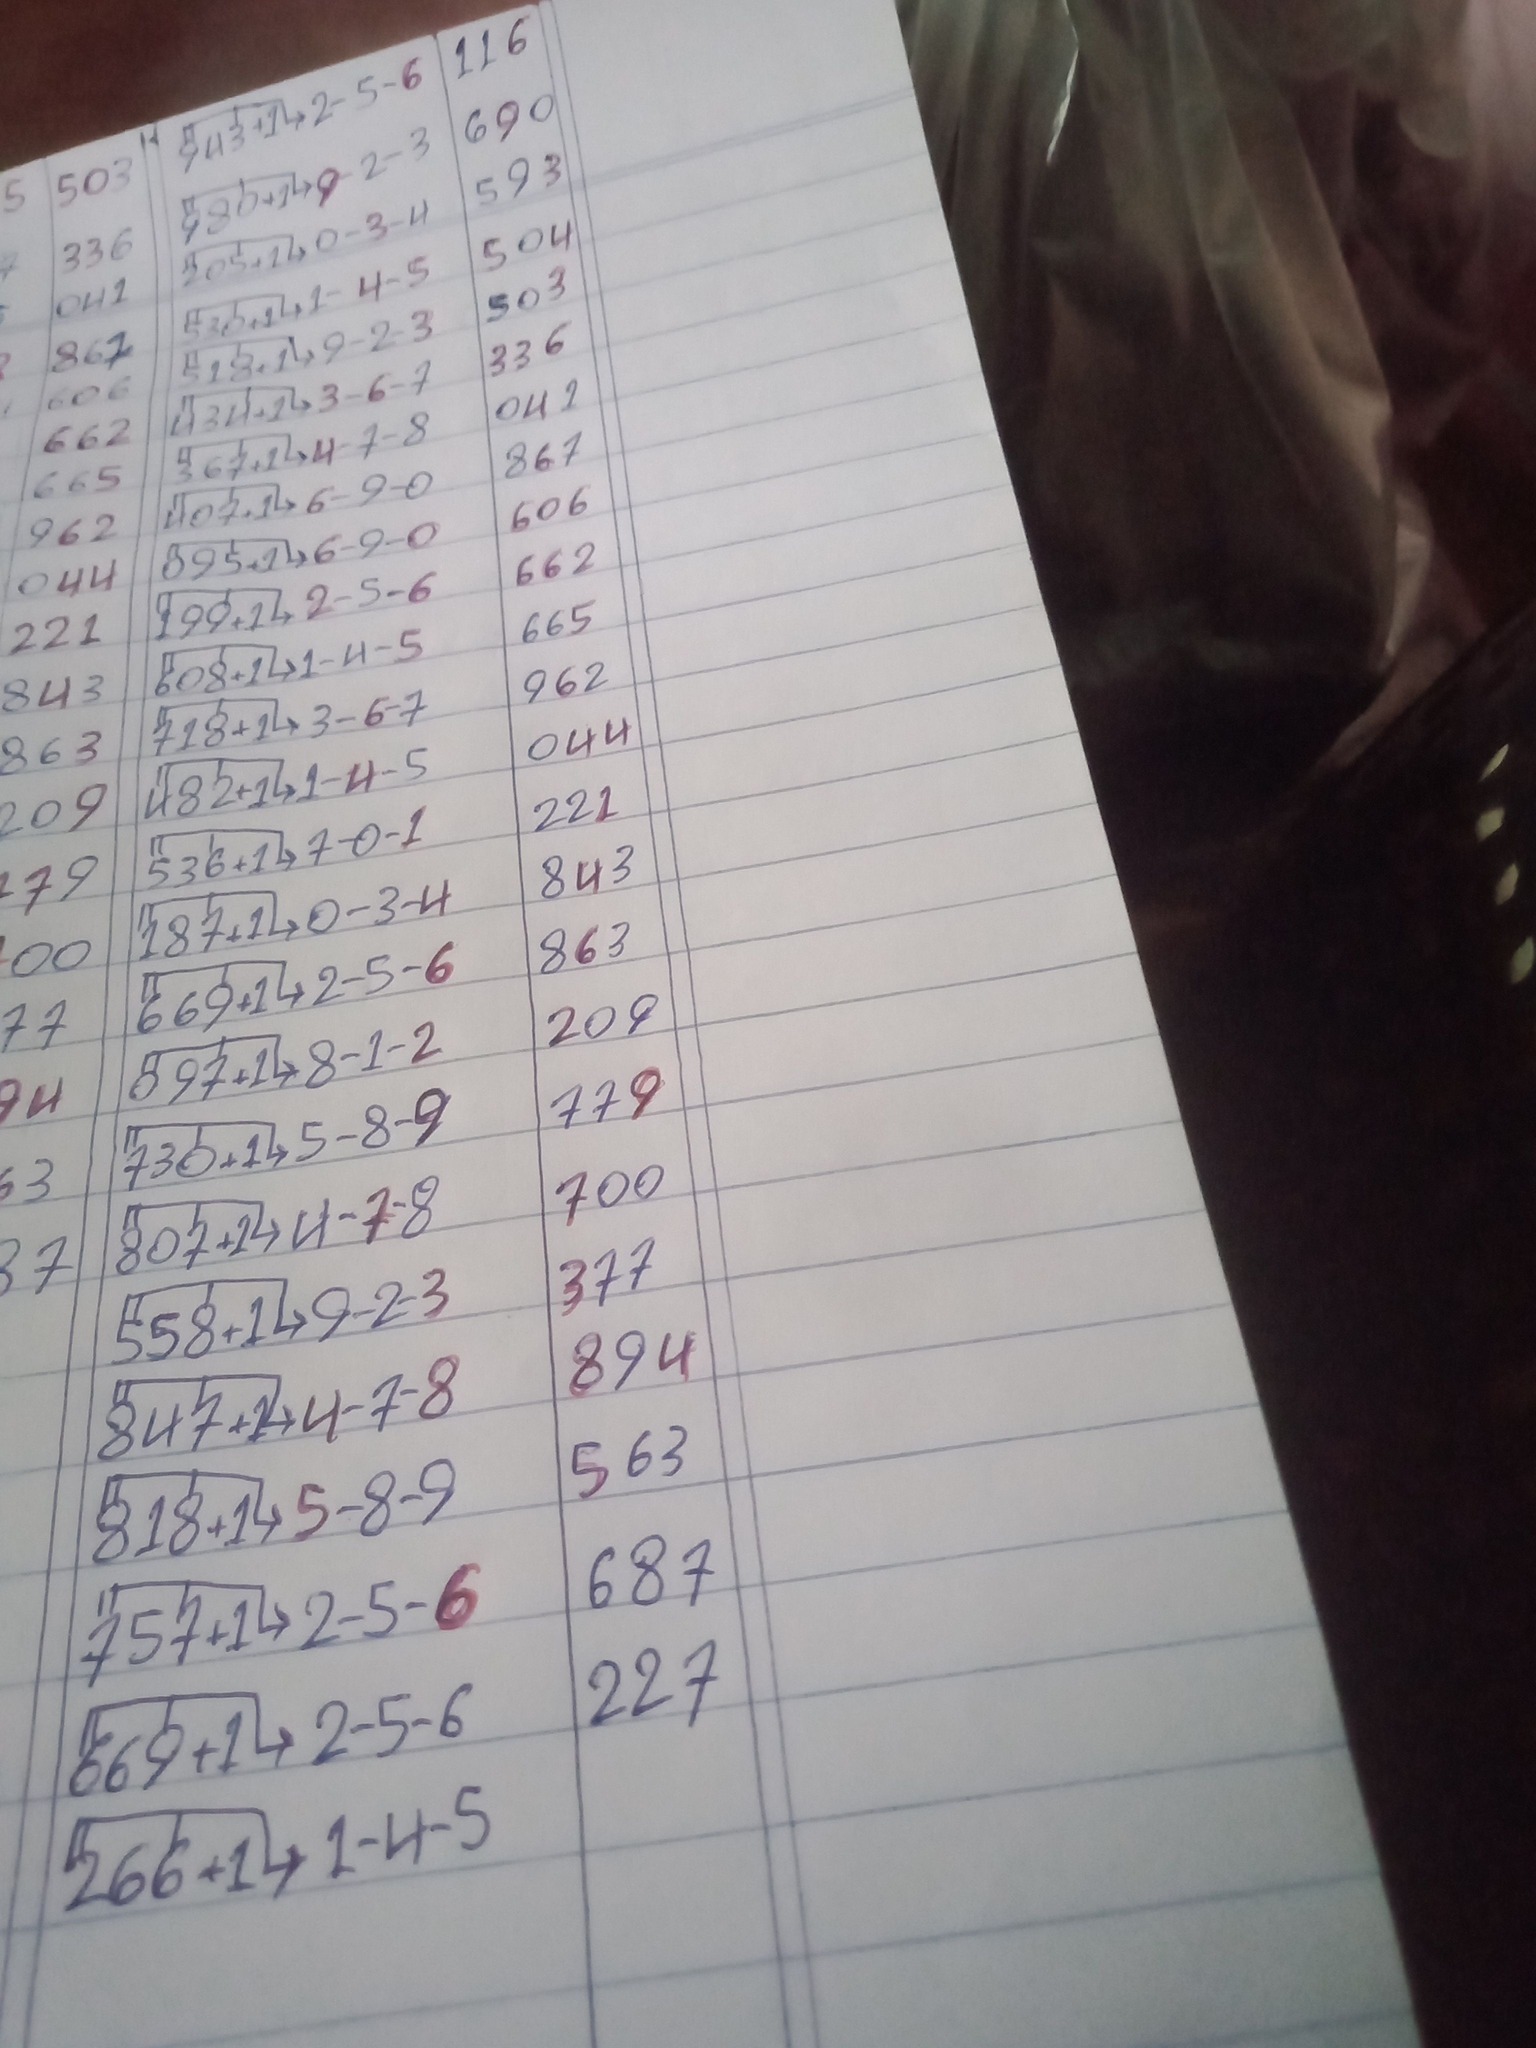 943+1↳2-5-6 116
503 980+1↳9-2-3 690
336 205+1↳0-3-4 593
041 530+1↳1-4-5 504
867 518+1↳9-2-3 503
606 434+1↳3-6-7 336
662 367+1↳4-7-8 041
665 407+1↳6-9-0 867
962 895+1↳6-9-0 606
044 199+1↳2-5-6 662
221 608+1↳1-4-5 665
843 718+1↳3-6-7 962
863 482+1↳1-4-5 044
209 536+1↳7-0-1 221
79 187+1↳0-3-4 843
00 669+1↳2-5-6 863
77 897+1↳8-1-2 209
94 730+1↳5-8-9 779
63 807+1↳4-7-8 700
37 558+1↳9-2-3 377
847+1↳4-7-8 894
818+1↳5-8-9 563
757+1↳2-5-6 687
669+1↳2-5-6 227
266+1↳1-4-5